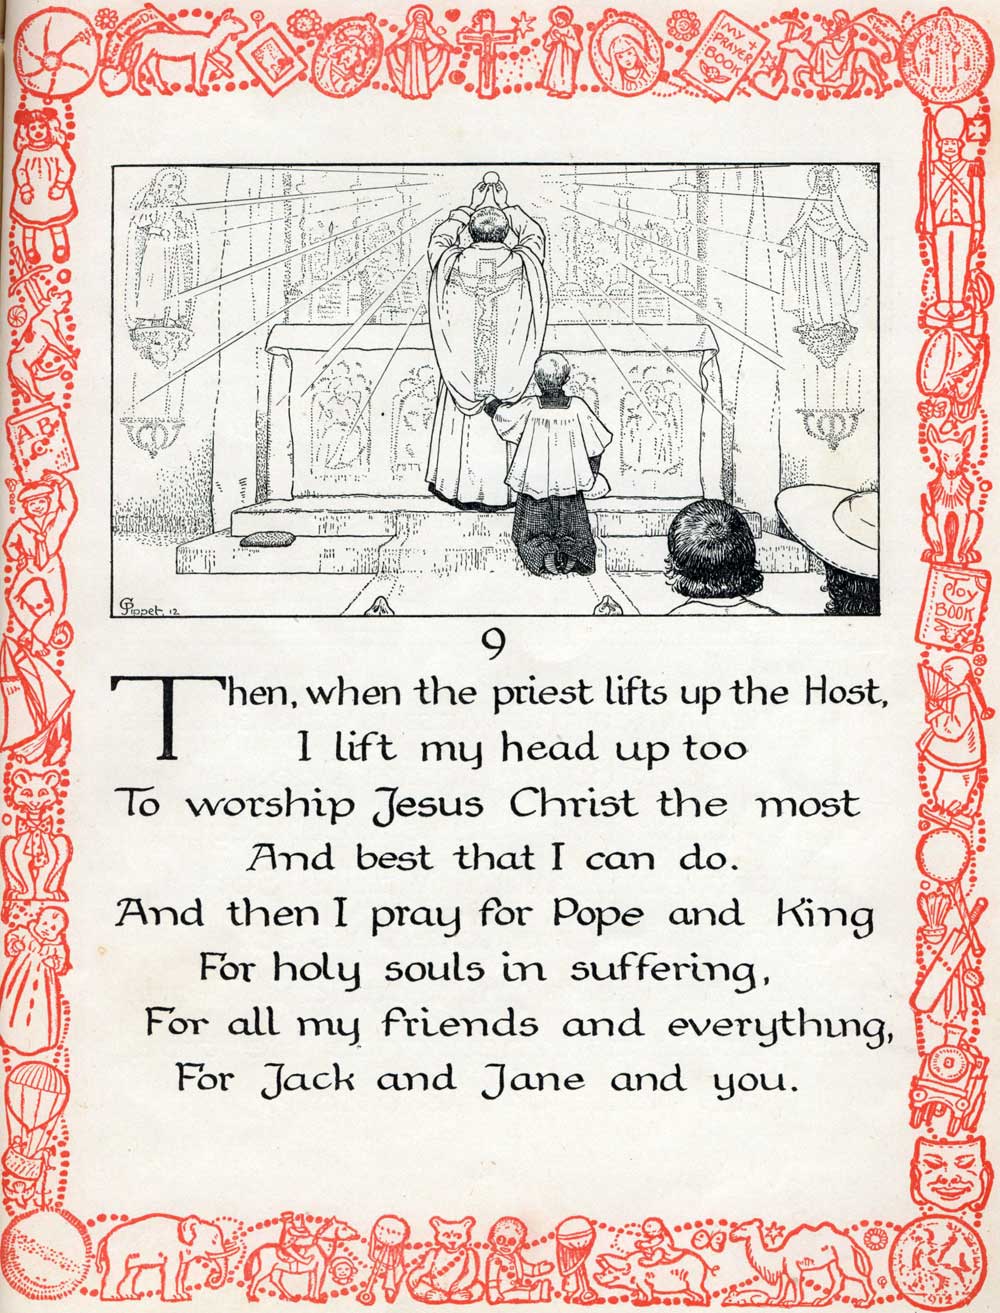 MY
PRAYER
BOOK
A.B.
C
TOY
BOOK
G Pippet. 12
9
Then, when the priest lifts up the Host,
I lift my head up too
To worship Jesus Christ the most
And best that I can do.
And then I pray for Pope and King
For holy souls in suffering,
For all my friends and everything,
For Jack and Jane and you.
1912